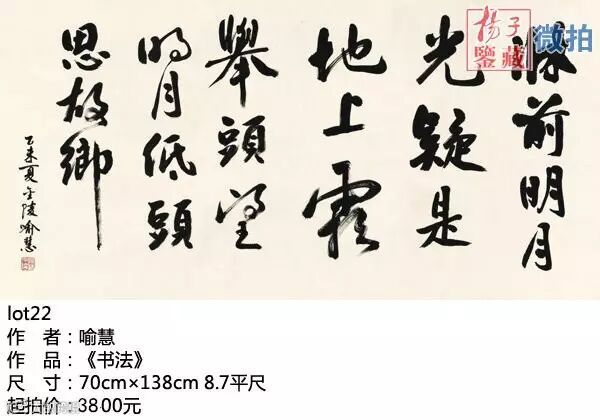 揚子
鑒藏
微拍
牀前明月
光疑是
地上霜
舉頭望
明月低頭
思故鄉
乙未夏金陵喻慧
lot22
作 者：喻慧
作 品：《书法》
尺 寸：70cm×138cm 8.7平尺
起拍价：3800元